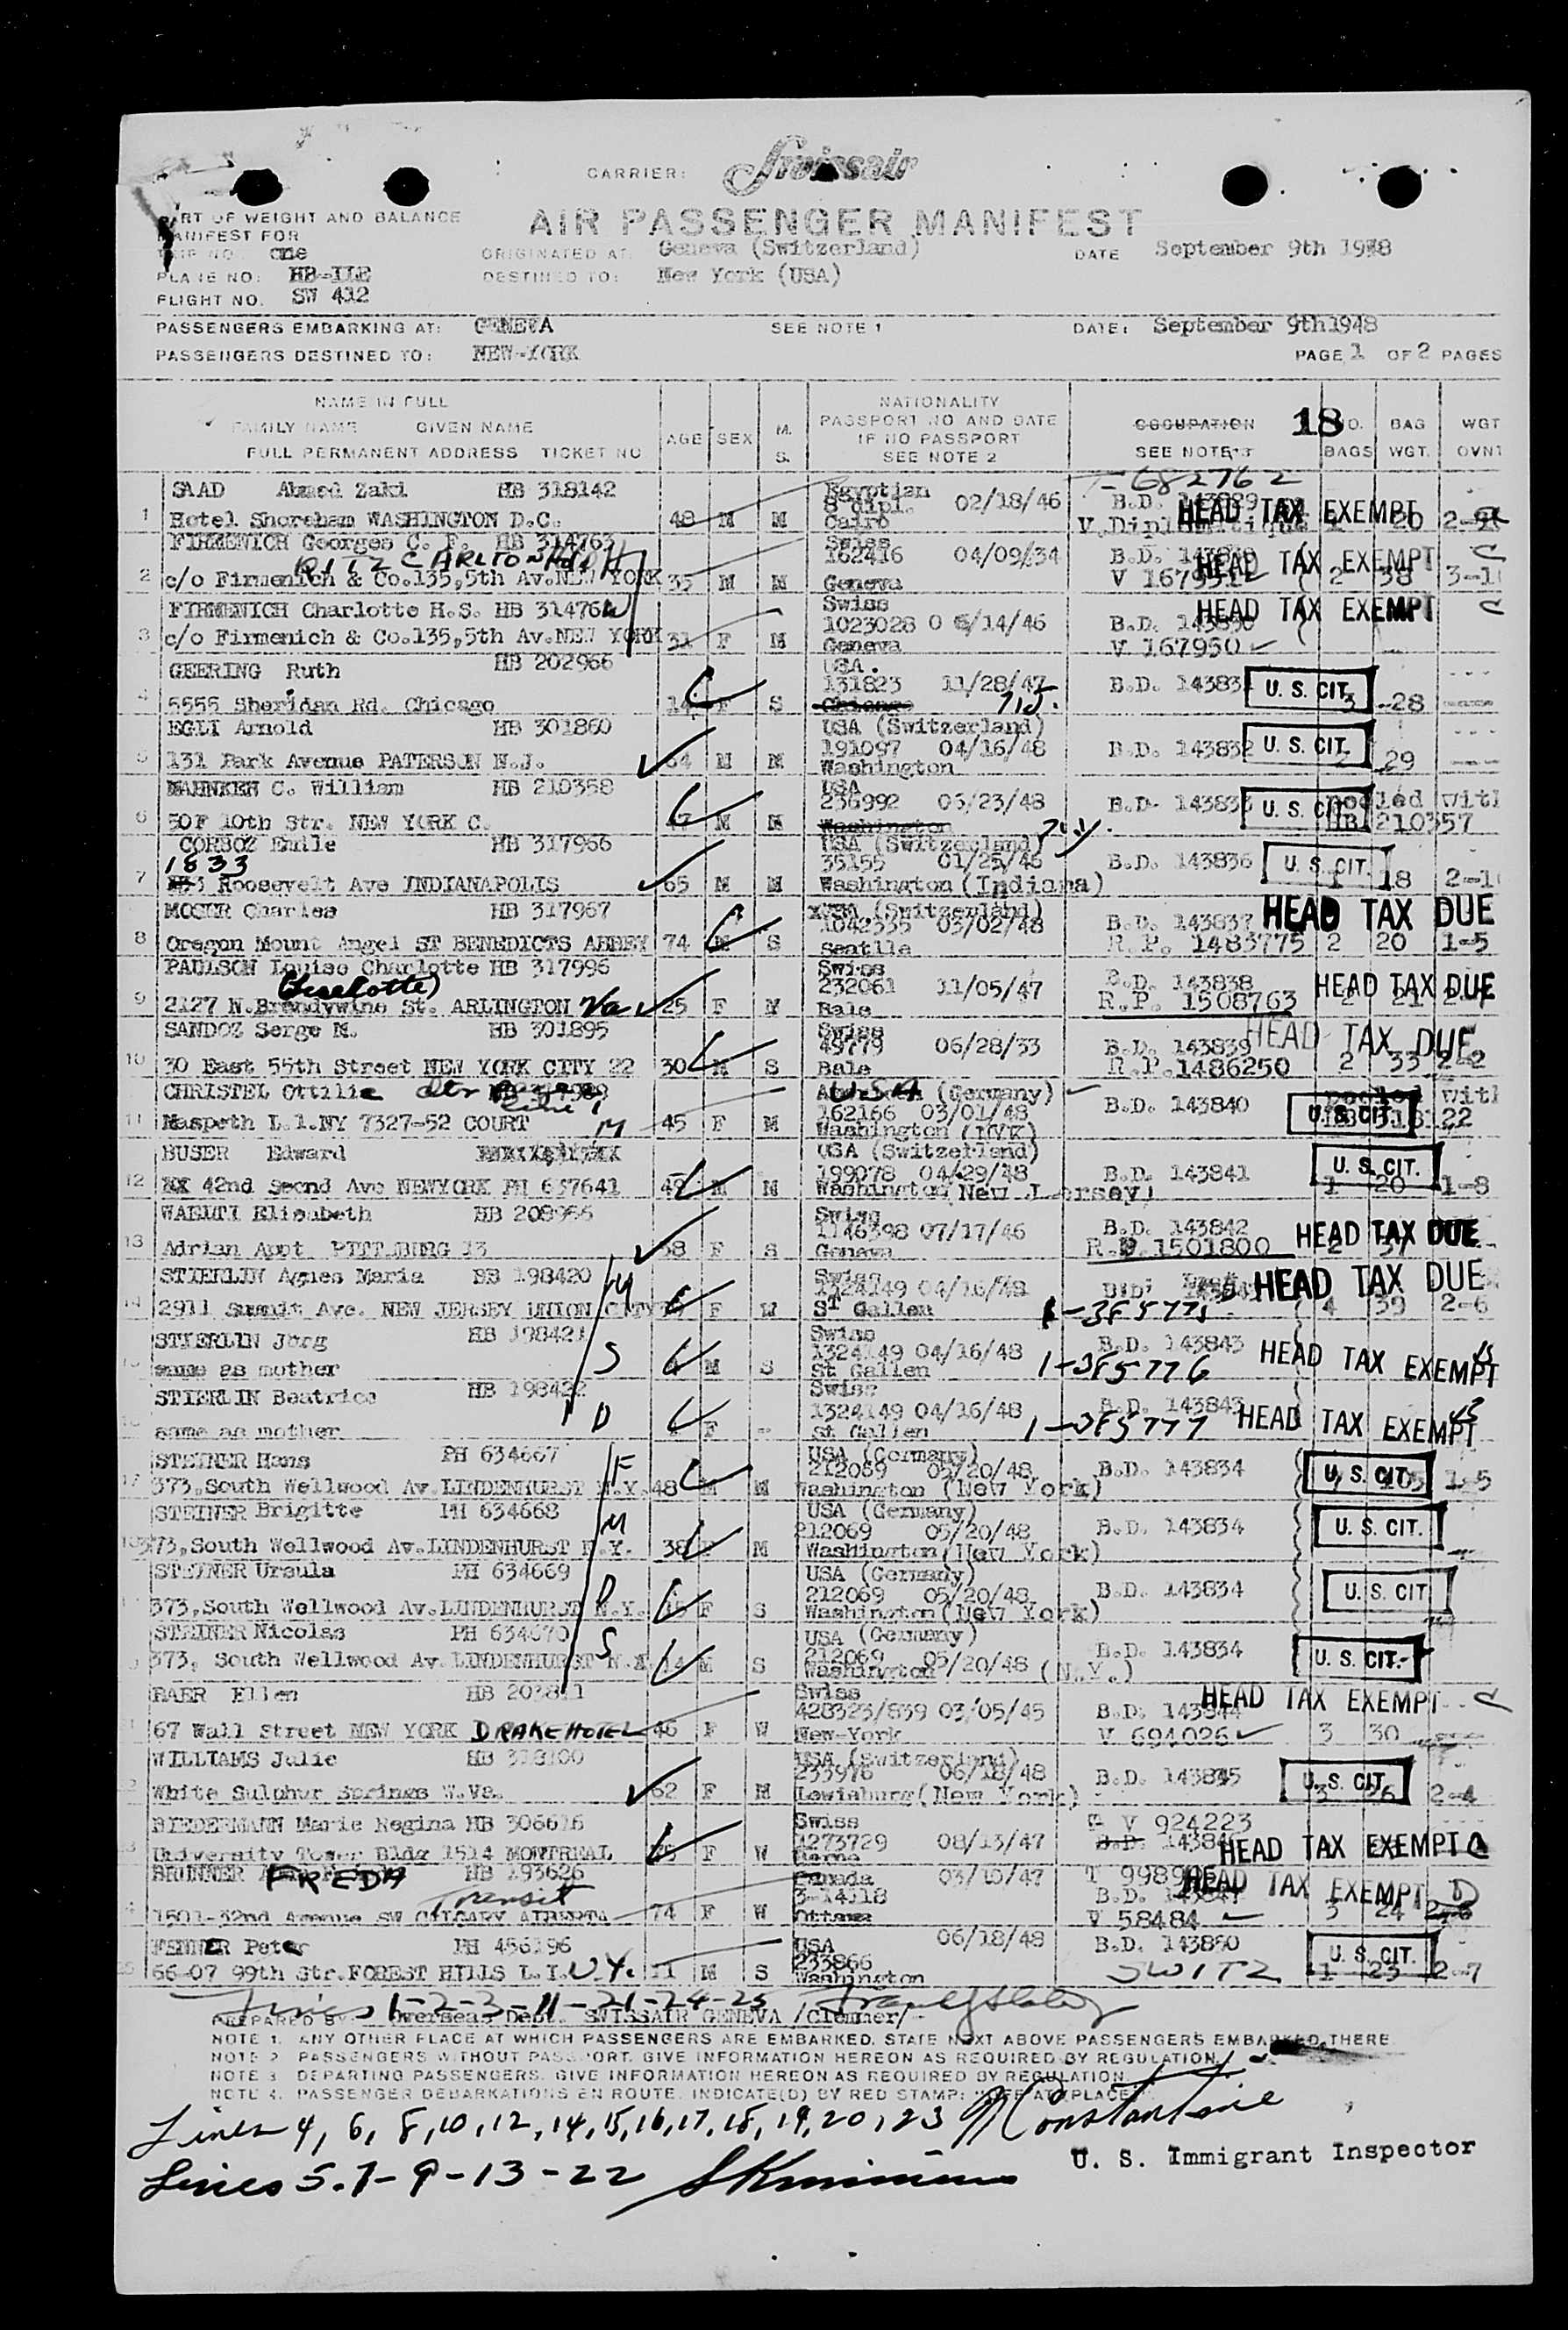 CARRIER: Swissair
PART OF WEIGHT AND BALANCE
MANIFEST FOR
AIR PASSENGER MANIFEST
TRIP NO. one
ORIGINATED AT: Geneva (Switzerland)
DATE September 9th 1948
PLANE NO: HB-ILE
DESTINED TO: New York (USA)
FLIGHT NO. SW 432
PASSENGERS EMBARKING AT: GENEVA
SEE NOTE 1
DATE: September 9th 1948
PASSENGERS DESTINED TO: NEW-YORK
PAGE 1 OF 2 PAGES
NAME IN FULL
FAMILY NAME GIVEN NAME
FULL PERMANENT ADDRESS TICKET NO
AGE SEX M. S.
NATIONALITY
PASSPORT NO AND DATE
IF NO PASSPORT
SEE NOTE 2
OCCUPATION
SEE NOTE 3
18
NO. BAGS
BAG WGT.
WGT OVNT
T-682762
SAAD Ahmed Zaki HB 318142 Egyptian
8 dipl. 02/18/46 B.D. 143829 HEAD TAX EXEMPT
1 Hotel Shoreham WASHINGTON D.C. 48 M M Cairo V.Diplomatique 20
FIRMENICH Georges C. F. HB 314763 Swiss
RITZ CARLTON Hotel 162416 04/09/34 B.D. HEAD TAX EXEMPT C
2 c/o Firmenich & Co.135,5th Av.NEW YORK 35 M M Geneva V 167951 2 38
FIRMENICH Charlotte H.S. HB 314764 Swiss HEAD TAX EXEMPT C
1023028 06/14/46 B.D. 143830
3 c/o Firmenich & Co.135,5th Av.NEW YORK 31 F M Geneva V 167950
GEERING Ruth HB 202966 USA.
131823 11/28/47 B.D. 143831 U. S. CIT.
4 5555 Sheridan Rd. Chicago 14 F S Chicago 3 28
EGLI Arnold HB 301860 USA (Switzerland)
191097 04/16/48 B.D. 143832 U. S. CIT.
5 131 Park Avenue PATERSON N.J. 64 M M Washington 2 29
MAHNKEN C. William HB 210358 USA
236992 B.D. 143833 U. S. CIT. pooled with
6 50F 10th Str. NEW YORK C. M M Washington HB 210357
CORBOZ Emile HB 317966 USA (Switzerland)
1833 35155 01/25/46 B.D. 143836 U. S. CIT.
7 Roosevelt Ave INDIANAPOLIS 65 M M Washington (Indiana) 1 18
MOSER Charles HB 317967 USA (Switzerland) HEAD TAX DUE
1042335 03/02/48 B.D. 143837
8 Oregon Mount Angel ST BENEDICTS ABBEY 74 M S Seattle R.P. 1483775 2 20 1-5
PAULSON Louise Charlotte HB 317996 Swiss
(Liselotte) 232061 11/05/47 B.D. 143838 HEAD TAX DUE
9 2127 N.Brandywine St. ARLINGTON Va 25 F M Bale R.P. 1508763 2 21
SANDOZ Serge M. HB 301895 Swiss HEAD TAX DUE
49779 06/28/33 B.D. 143839
10 30 East 55th Street NEW YORK CITY 22 30 M S Bale R.P. 1486250 2 33 2-2
CHRISTEL Ottilie USA (Germany) pooled with
162166 03/01/48 B.D. 143840 U. S. CIT.
11 Maspeth L.I.NY 7327-52 COURT M 45 F M Washington (NYK)
BUSER Edward USA (Switzerland)
199078 04/29/48 B.D. 143841 U. S. CIT.
12 42nd Secnd Ave NEWYORK PH 657641 49 M M Washington New Jersey) 1 20 1-8
WAELTI Elisabeth HB 208966 Swiss
1146398 07/17/46 B.D. 143842 HEAD TAX DUE
13 Adrian Appt PITTSBURG 13 58 F S Geneva R.P. 1501800
STIERLIN Agnes Maria HB 198420 M Swiss
1324149 04/16/48 B.D. HEAD TAX DUE
14 2911 Summit Ave. NEW JERSEY UNION CITY F W St Gallen 1-385775 4 39 2-6
STIERLIN Jörg HB 198421 Swiss
1324149 04/16/48 B.D. 143843 HEAD TAX EXEMPT
15 same as mother S M S St Gallen 1-385776
STIERLIN Beatrice HB 198422 Swiss
D 1324149 04/16/48 B.D. 143843 HEAD TAX EXEMPT
16 same as mother F St Gallen 1-385777
STEINER Hans PH 634667 F USA (Germany)
212069 05/20/48 B.D. 143834 U. S. CIT.
17 373,South Wellwood Av.LINDENHURST N.Y. 48 M M Washington (New York) 1-5
STEINER Brigitte PH 634668 M USA (Germany)
212069 05/20/48 B.D. 143834 U. S. CIT.
18 373,South Wellwood Av.LINDENHURST N.Y. 38 F M Washington (New York)
STEINER Ursula PH 634669 D USA (Germany)
212069 05/20/48 B.D. 143834 U. S. CIT
373,South Wellwood Av.LINDENHURST N.Y. F S Washington (New York)
STEINER Nicolas PH 634670 S USA (Germany)
212069 05/20/48 B.D. 143834 U. S. CIT.
373, South Wellwood Av.LINDENHURST N.Y. 14 M S Washington (N.Y.)
BAER Ellen HB 203811 Swiss HEAD TAX EXEMPT C
428323/839 03/05/45 B.D. 143844
67 Wall Street NEW YORK DRAKE HOTEL 46 F W New-York V 694026 3 30
WILLIAMS Julie USA (Switzerland)
233976 06/18/48 B.D. 143845 U. S. CIT
White Sulphur Springs W.Va. 62 F M Lewisburg (New York) 3 2-4
BIEDERMANN Marie Regina HB 306676 Swiss V 924223
1273729 08/13/47 HEAD TAX EXEMPT
University Tower Bldg 1514 MONTREAL F W Berne
BRUNNER FREDA HB 193626 Canada 03/10/47 T
Transit 3-14118 B.D. HEAD TAX EXEMPT D
1501-32nd Avenue SW CALGARY ALBERTA 74 F W Ottawa V 58484 3 24
FENNER Peter PH 456196 USA 06/18/48 B.D. 143860
233866 U. S. CIT.
66-07 99th Str.FOREST HILLS L.I. N.Y. M S Washington SWITZ 1 23 2-7
Lines 1-2-3-11-21-24-25
PREPARED BY: Overseas Dept. SWISSAIR GENEVA /Clemmer/
NOTE 1. ANY OTHER PLACE AT WHICH PASSENGERS ARE EMBARKED, STATE NEXT ABOVE PASSENGERS EMBARKED THERE
NOTE 2 PASSENGERS WITHOUT PASSPORT, GIVE INFORMATION HEREON AS REQUIRED BY REGULATION.
NOTE 3 DEPARTING PASSENGERS, GIVE INFORMATION HEREON AS REQUIRED BY REGULATION.
NOTE 4. PASSENGER DEBARKATIONS EN ROUTE, INDICATE(D) BY RED STAMP:
Lines 4, 6, 8, 10, 12, 14, 15, 16, 17, 18, 19, 20, 23 Constantine
U. S. Immigrant Inspector
Lines 5. 7-9-13-22